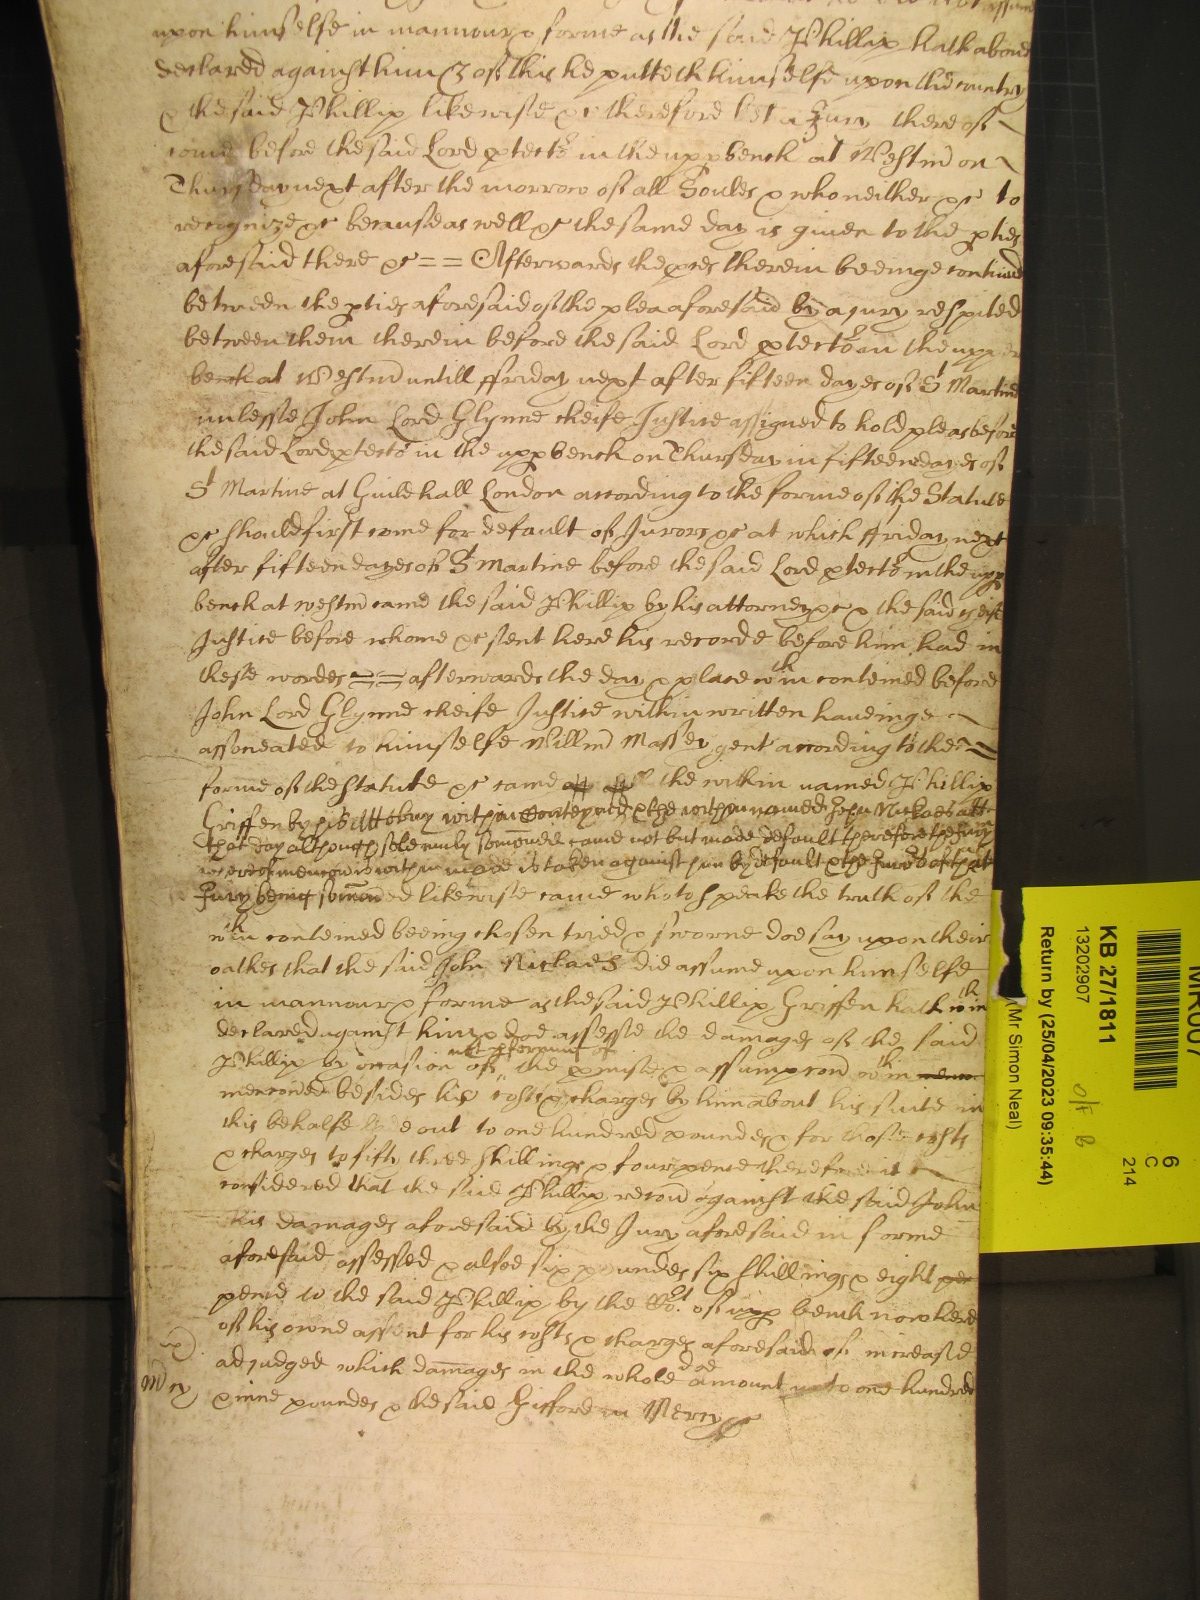 upon himselfe in mannour & forme as the said Phillip hath above
declared against him & of this he putteth himselfe upon the country
& the said Phillip likewise &c therefore let a Jury thereof
come before the said Lord ptector in the upp bench at Westm on
Thursday next after the morrow of all Soules & who neither &c to
recognize &c because as well &c the same day is given to the pties
aforesaid there &c == Afterwards the pces therein beeinge continued
betweene the pties aforesaid of the plea aforesaid by a jury respited
betweene them therein before the said Lord ptector in the upper
bench at Westm untill ffriday next after fifteen dayes of St Martine
unlesse John Lord Glynne cheife Justice assigned to hold pleas before
the said Lord ptector in the upp bench on Thursday in fifteene dayes of
St Martine at Guildhall London according to the forme of the Statute
&c should first come for default of Jurors &c at which ffriday next
after fifteen dayes of St Martine before the said Lord ptector in the upp
bench at Westm came the said Phillip by his attorney &c & the said cheife
Justice before whome &c sent here his recorde before him had in
these wordes == afterwards the day & place wthin conteined before
John Lord Glynne cheife Justice within written haveinge
assoceated to himselfe Willm Massey gent according to the
forme of the Statute &c came the within named Phillip
Griffen by his Attorney within conteyned & the within named John Nicklaes att
that day although solemnly somoned came not but made default therefore the Jury
whereof mencon is within made is taken against him by default & the Jurors of that
Jury being somoned likewise came who to speake the truth of the
wthin conteined beeing chosen tried & sworne doe say upon their
oathes that the said John Nicklaes did assume upon himselfe
in mannour & forme as the said Phillip Griffen hath wthin
declared against him & doe assesse the damages of the said
Phillip by occasion of not pforming of the pmisses & assumpcond wthin
menconed besides his costs & charges by him about his suite in
this behalfe out to one hundred poundes & for those costs
& charges to fifty three shillings & fourpence therefore it is
considered that the said Phillip recovr against the said John
his damages aforesaid by the Jury aforesaid in forme
aforesaid assessed & alsoe six poundes six shillings & eight
pence to the said Phillip by the Cort of upp bench now here
of his owne assent for his costs & charges aforesaid of increase
adjudged which damages in the whole doe amount unto one hundred
Mcy
& nine poundes & the said Gifford in Mercy &c
MR007
6
C
214
KB 27/1811
13202907
Return by (25/04/2023 09:35:44)
(Mr Simon Neal)